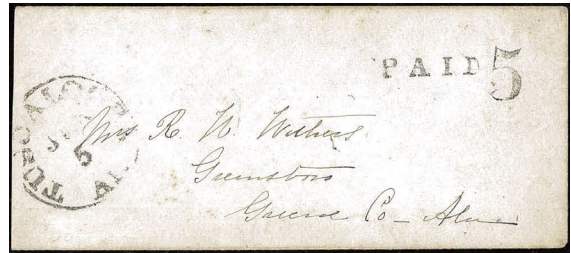 PAID 5
TUSCALOOSA
5
Mrs R. W. Withers
Greensboro
Greene Co - Ala